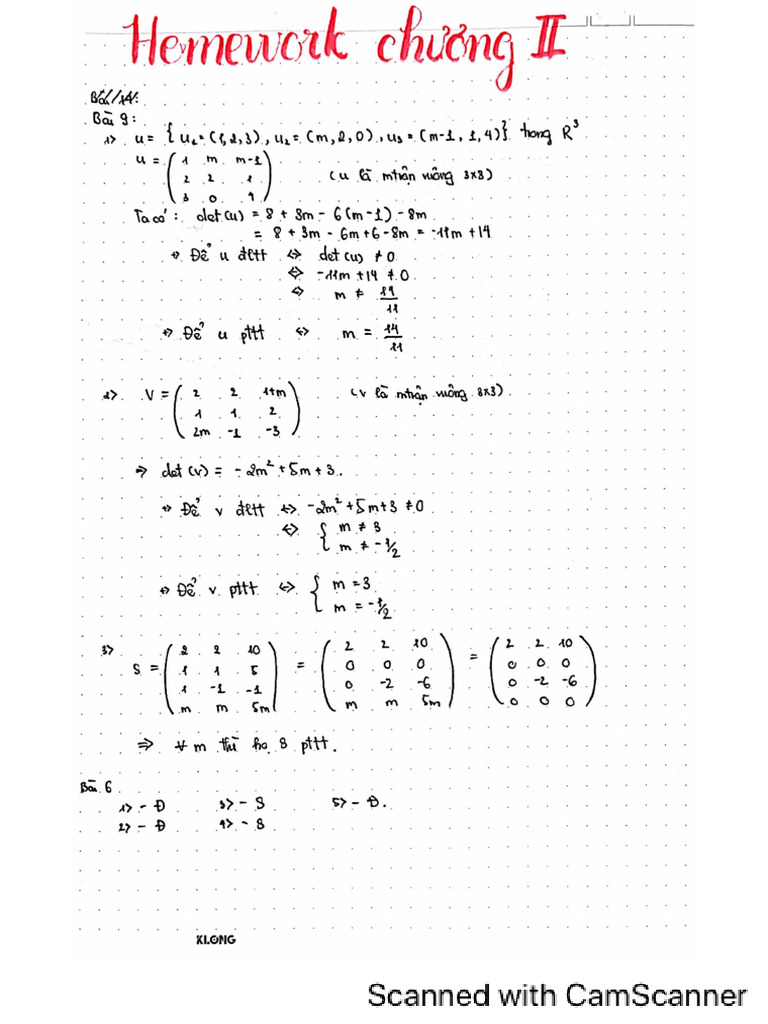 Homework chương II
Bài 9:
1> u = { u₁=(1,2,3), u₂=(m,2,0), u₃=(m-1,1,4)} trong R³
u = ( 1 m m-1
2 2 1 (u là mtrận vuông 3x3)
3 0 4 )
Ta có: det(u) = 8 + 3m - 6(m-1) - 8m
= 8 + 3m - 6m + 6 - 8m = -11m + 14
Để u đltt ⇔ det(u) ≠ 0
⇔ -11m + 14 ≠ 0
⇔ m ≠ 14/11
Để u pttt ⇔ m = 14/11
2> V = ( 2 2 1+m (V là mtrận vuông 3x3)
1 1 2
2m -1 -3 )
⇒ det(v) = -2m² + 5m + 3.
Để v đltt ⇔ -2m² + 5m + 3 ≠ 0
⇔ { m ≠ 3
m ≠ -1/2
Để v pttt ⇔ { m = 3
m = -1/2
3> S = ( 2 2 10 = ( 2 2 10 = ( 2 2 10
1 1 5 0 0 0 0 0 0
1 -1 -1 0 -2 -6 0 -2 -6
m m 5m ) m m 5m ) 0 0 0 )
⇒ ∀ m thì họ S pttt.
Bài 6
1> - Đ 3> - S 5> - Đ.
2> - Đ 4> - S
KLONG
Scanned with CamScanner